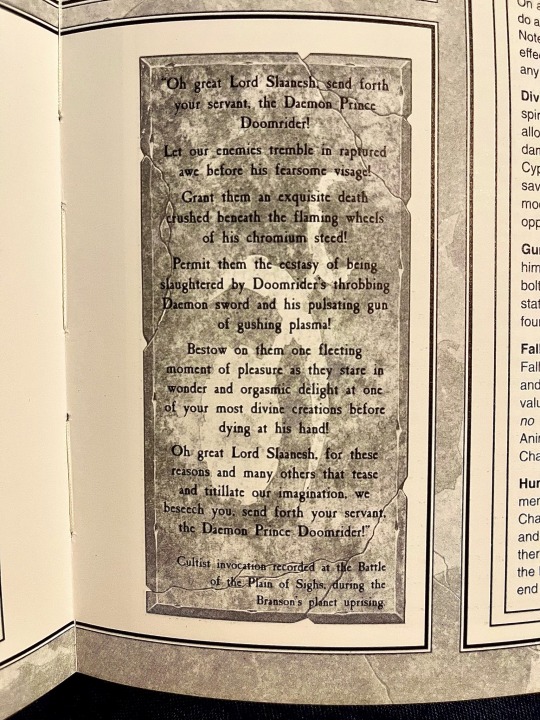 "Oh great Lord Slaanesh, send forth
your servant, the Daemon Prince
Doomrider!
Let our enemies tremble in raptured
awe before his fearsome visage!
Grant them an exquisite death
crushed beneath the flaming wheels
of his chromium steed!
Permit them the ecstasy of being
slaughtered by Doomrider's throbbing
Daemon sword and his pulsating gun
of gushing plasma!
Bestow on them one fleeting
moment of pleasure as they stare in
wonder and orgasmic delight at one
of your most divine creations before
dying at his hand!
Oh great Lord Slaanesh, for these
reasons and many others that tease
and titillate our imagination, we
beseech you, send forth your servant,
the Daemon Prince Doomrider!"
Cultist invocation recorded at the Battle
of the Plain of Sighs, during the
Branson's planet uprising.
On a
do a
Note
effe
any
Div
spir
allo
dam
Cyp
sav
mod
opp
Gun
him
bolt
stat
four
Fall
Fall
and
valu
no
Anin
Cha
Hun
mem
Cha
and
ther
the
end